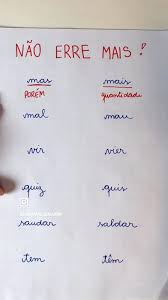 NÃO ERRE MAIS!
mas mais
PORÉM quantidade
mal mau
vir vier
quiz quis
saudar
tem têm